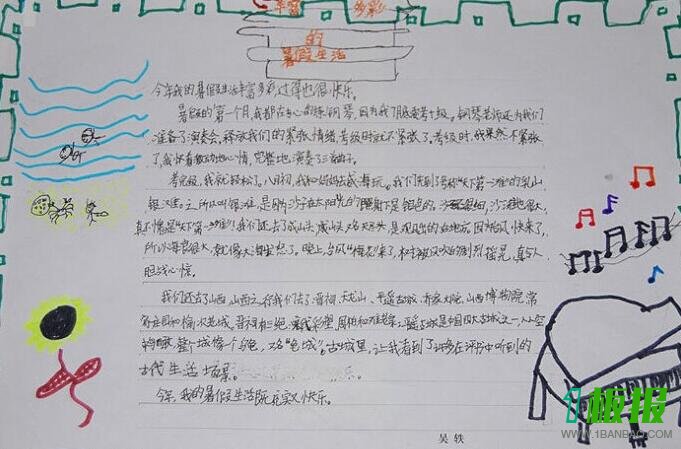 丰富多彩
的
暑假生活
今年我的暑假生活丰富多彩,过得也很快乐。
暑假的第一个月,我都在专心的练钢琴,因为我7月底要考十级。钢琴老师还为我们
准备了演奏会,释放我们的紧张情绪,考级时就不紧张了。考级时,我果然不紧张
了,我怀着激动的心情,完整地演奏了三首曲子。
考完级,我就轻松了。八月初,我和妈妈去威海玩。我们去了号称"天下第一滩"的乳山
银滩。之所以叫银滩,是因为沙子在太阳的照射下是银色的
真不愧是"天下第一滩"!我们还去了成山头,成山头又名天尽头,是观日出的好地方。因为台风快来了,
所以海浪很大,就像大海发怒了。晚上,台风"梅花"来了,树被风吹的剧烈摇晃,真令人
胆战心惊。
我们还去了山西,山西之行我们去了晋祠、天龙山、平遥古城、乔家大院、山西博物院、常
家庄园和榆次老城。晋祠有三绝,平遥古城是中国四大古城之一,从空
整个城像个乌龟,又名"龟城"。古城里,让我看到了许多在评书中听到的
古代生活场景。
今年,我的暑假生活既充实又快乐。
吴轶
1板报
WWW.1BANBAO.COM